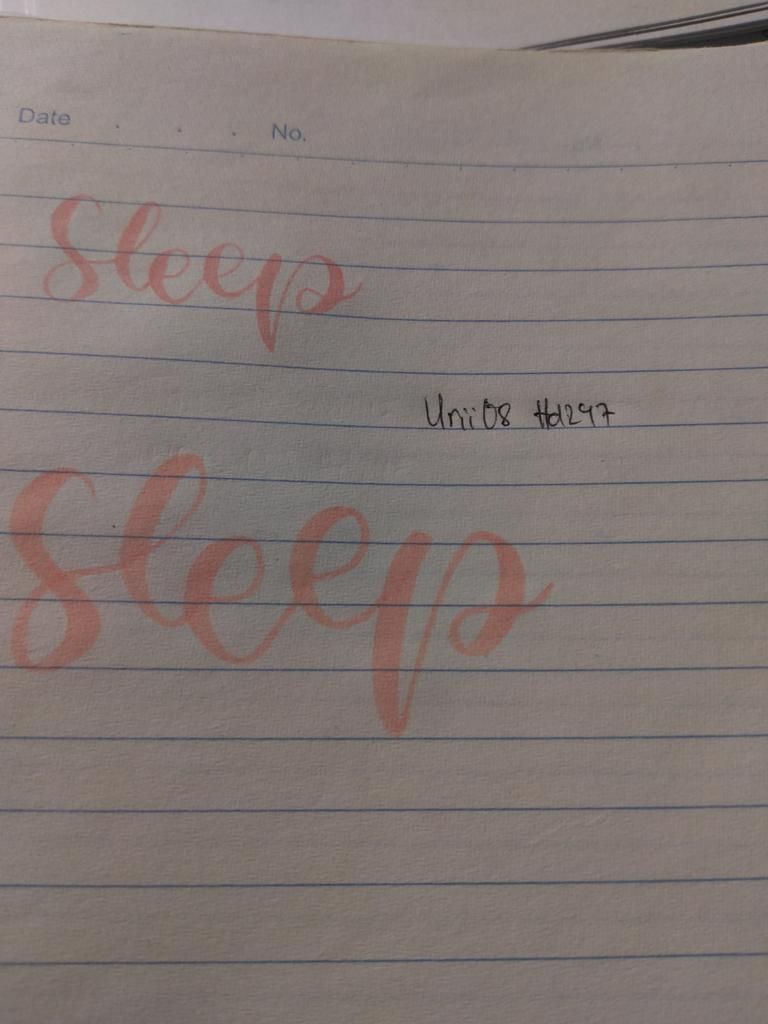 Date . . . No.
Sleep
Unii08 Hd297
Sleep